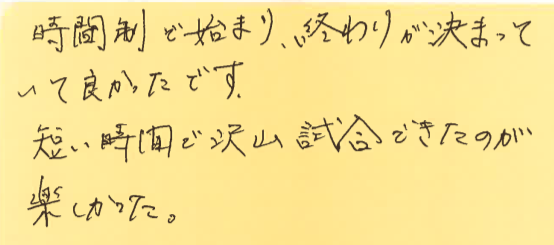 時間制で始まり、終わりが決まって
いて良かったです.
短い時間で沢山試合できたのが
楽しかった。